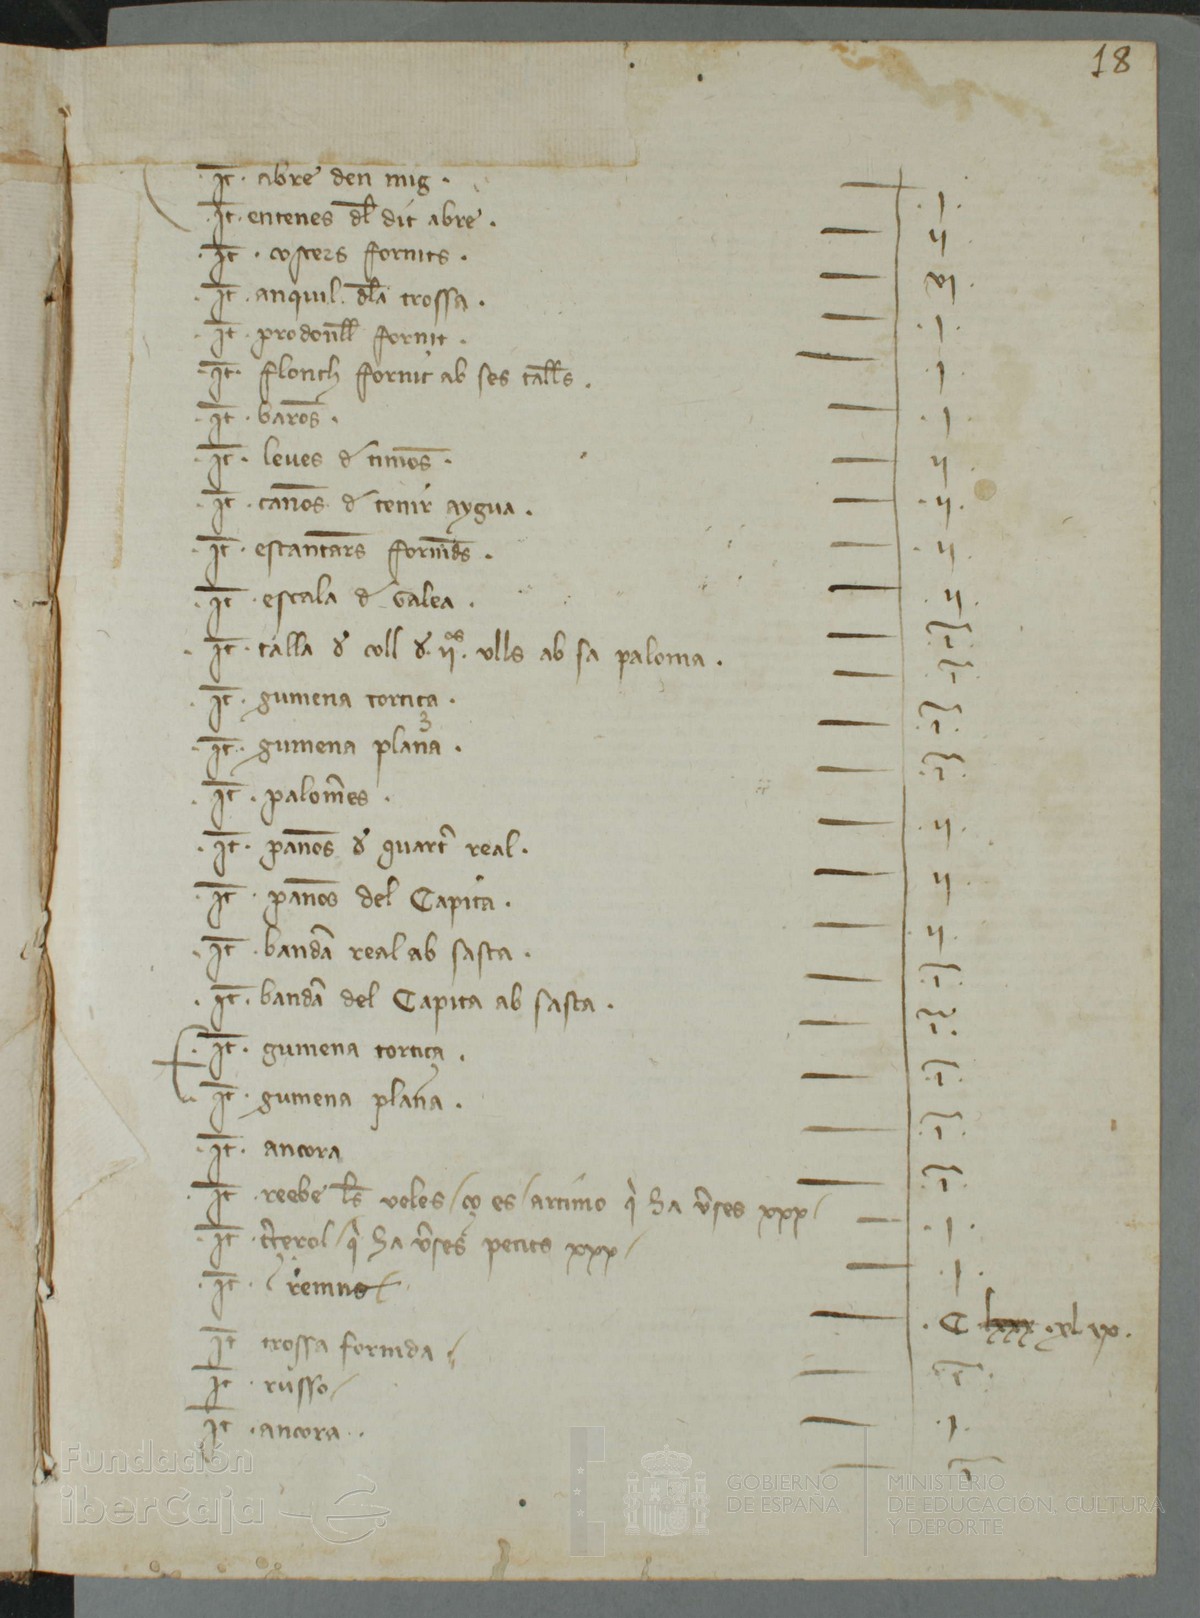 18
·It· abre den mig · ·I·
·It· entenes dl dit abre · II
·It· costers fornits · VI·
·It· anquil· dla trossa · ·I·
·It· prodonll fornit · ·I·
·It· flonch fornit ab ses talls · I
·It· baros · ·I·
·It· leues d timos · II
·It· canos d tenir aygua · ·II·
·It· estantars fornids · ·II
·It· escala d Galea · ·II·
·It· talla d coll d· IIos· vlls ab sa paloma · ·I·
·It· gumena tortiça · ·I·
·It· gumena plana · ·I·
·It· palomes · ·I·
·It· panos d quart real · ·II·
·It· panos del Capita · II·
·It· banda real ab sasta · ·II·
·It· banda del Capita ab sasta · ·I·
·It· gumena tortiça · ·I·
·It· gumena plana · ·I·
·It· ancora ·I·
·It· reebe ls veles / ço es / artimo q ha vses xxx / ·I·
·It· terol / q ha vses petits xxx / ·I·
·It· remus / · C xl ix ·
It trossa fornida / ·I·
It · russo / ·I·
It · ancora · · I
Fundación
iberCaja
GOBIERNO
DE ESPAÑA
MINISTERIO
DE EDUCACIÓN, CULTURA
Y DEPORTE